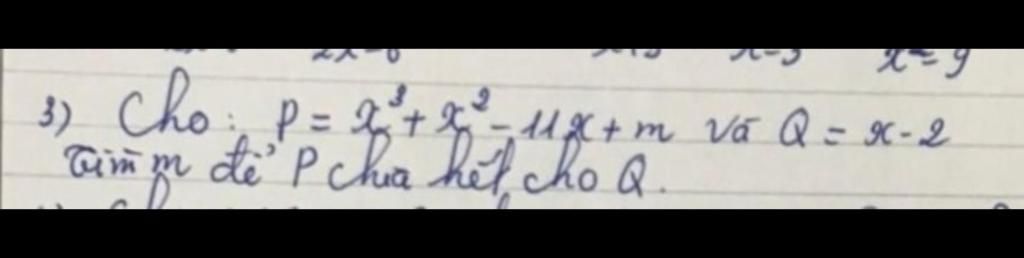 3) Cho: P = x³ + x² - 11x + m và Q = x - 2
Tìm m để P chia hết cho Q.